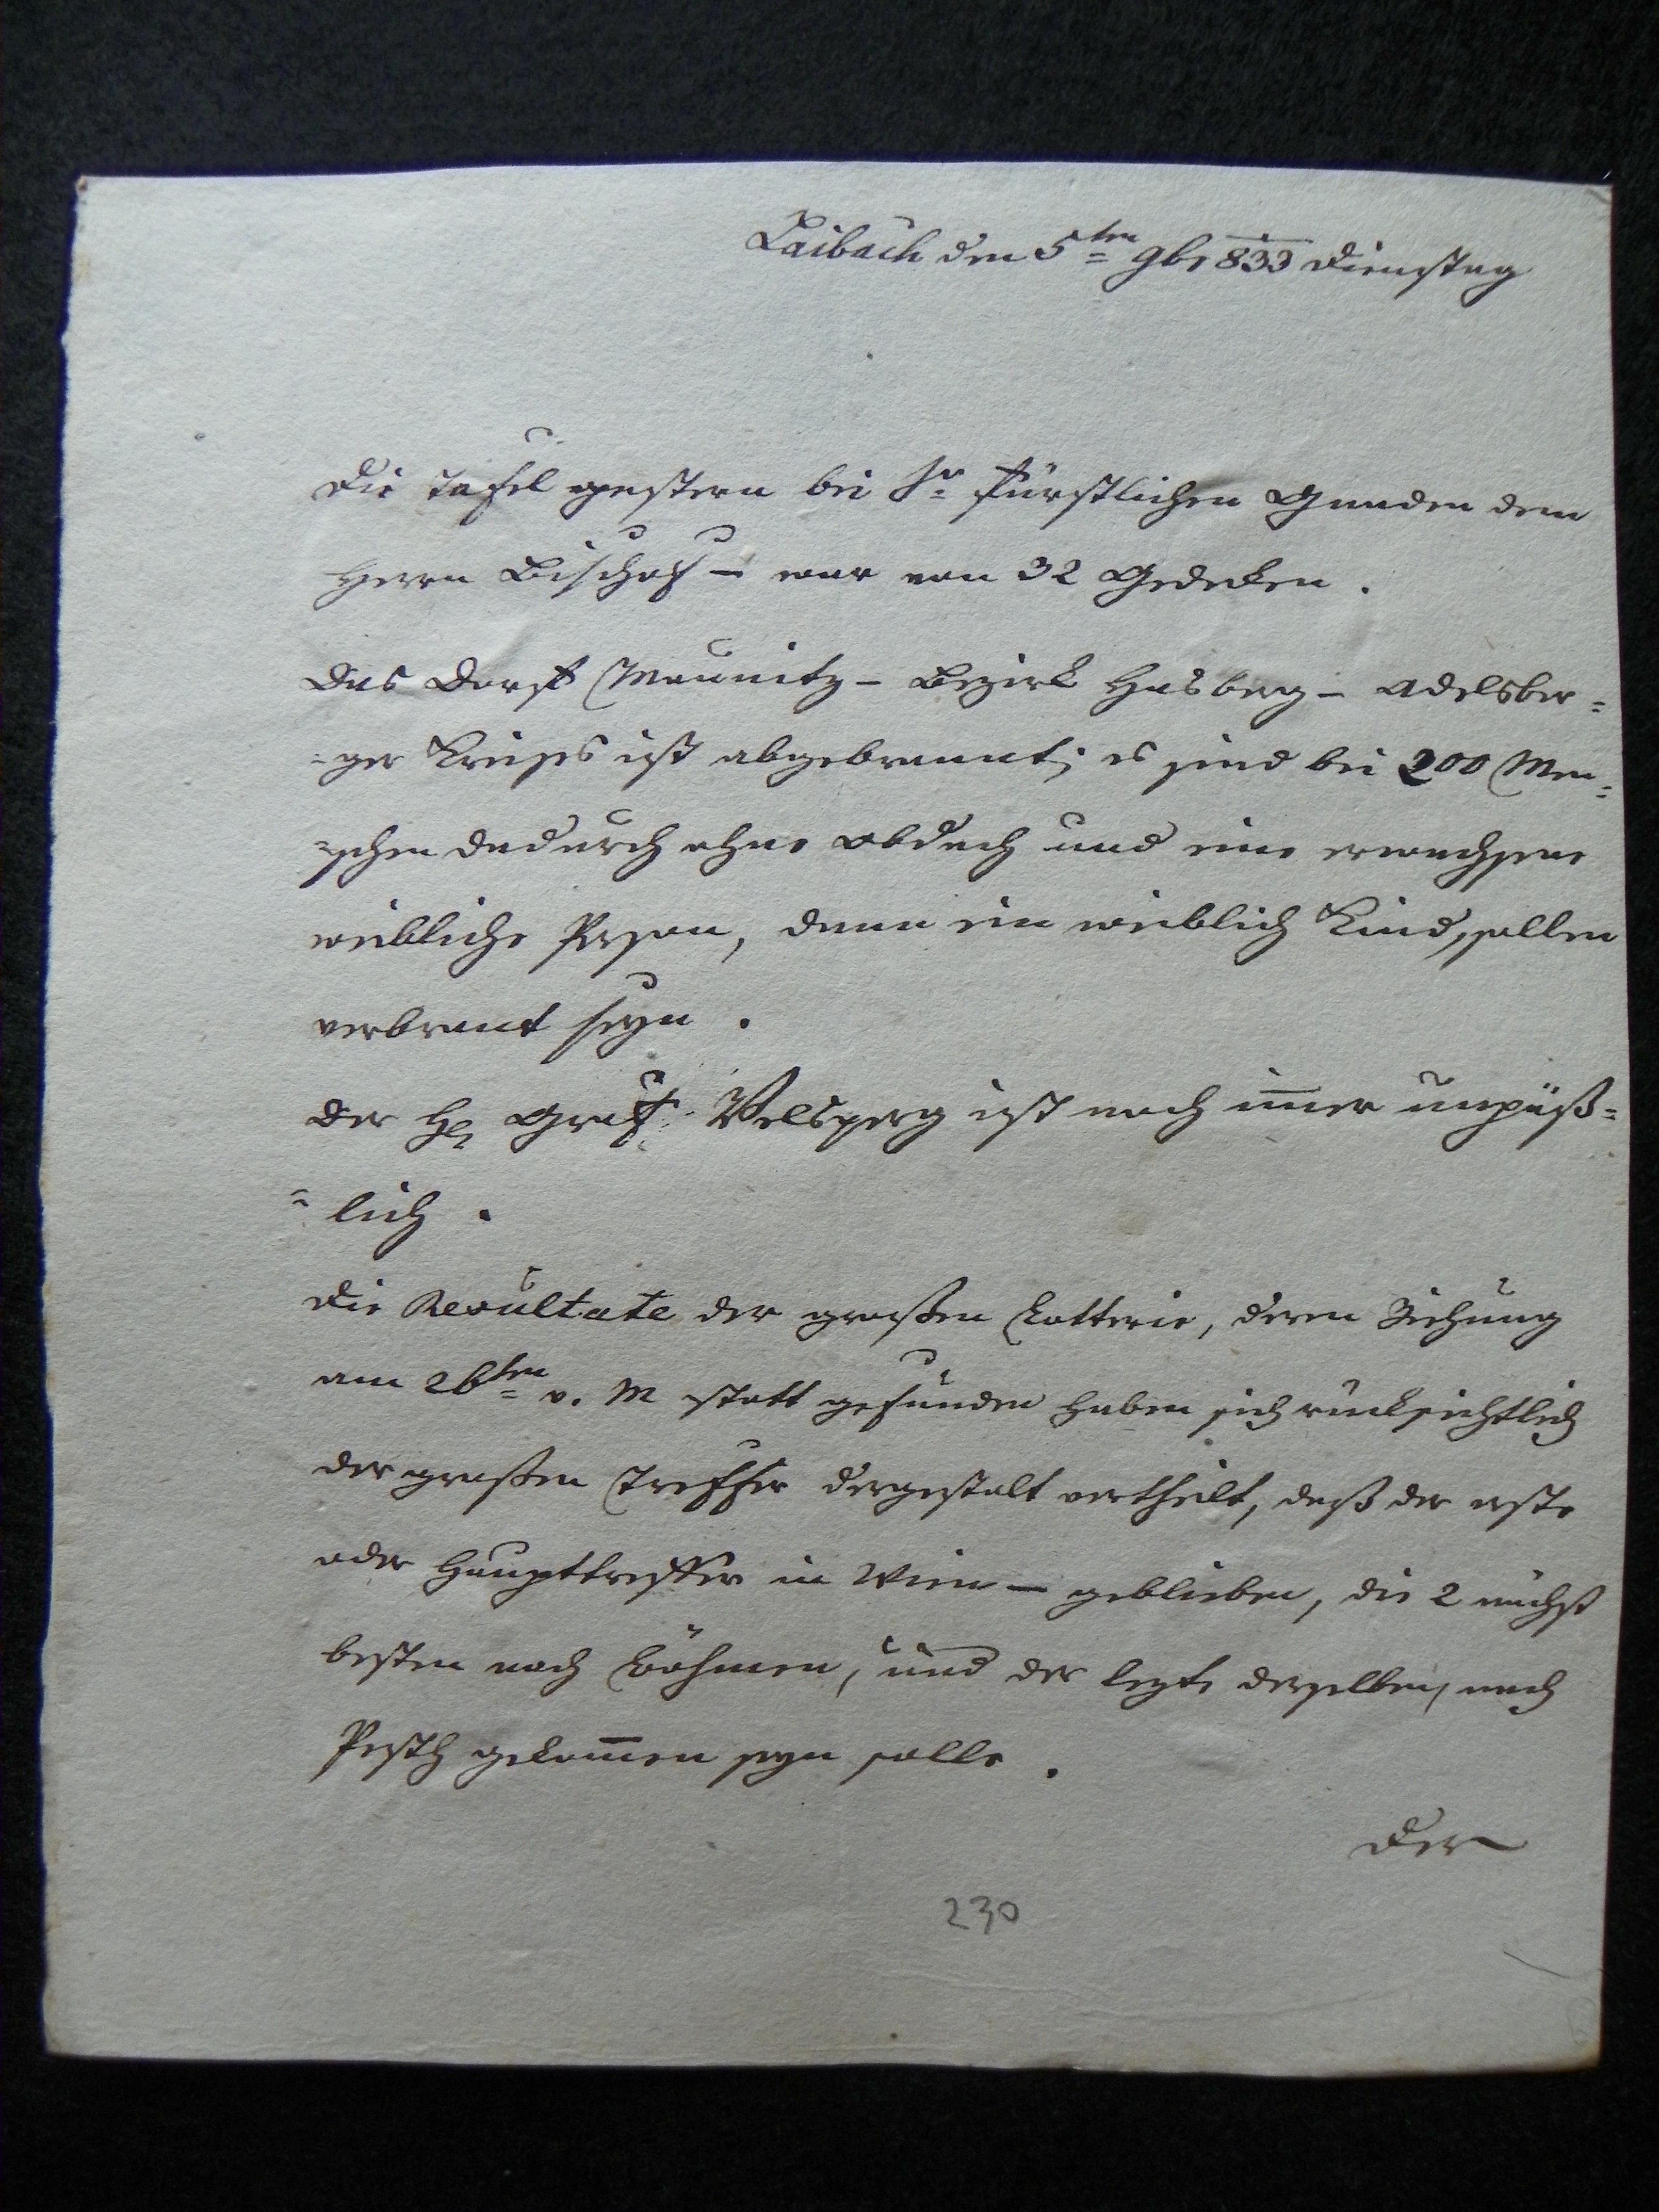 Laibach den 5ten 9br 833 Dienstag
Die Tafel gestern bei Sr fürstlichen Gnaden dem
Herrn Bischof – war von 32 Gedecken.
Das Dorf Maunitz – Bezirk Hasberg – Adelsber=
=ger Kreises ist abgebrannt; es sind bei 200 Men=
=schen dadurch ohne Obdach und eine erwachsene
weibliche Person, dann ein weiblich Kind, sollen
verbrant seyn.
Der H. Graf Welsperg ist noch im̅er unpäß=
=lich.
Die Resultate der großen Lotterie, deren Ziehung
am 26ten v. M statt gefunden haben sich rücksichtlich
der großen Treffer dergestalt vertheilt, daß der erste
oder Haupttreffer in Wien – geblieben, die 2 nächst
besten nach Böhmen, und der lezte derselben, nach
Pesth gekom̅en seyn solle.
Der
230